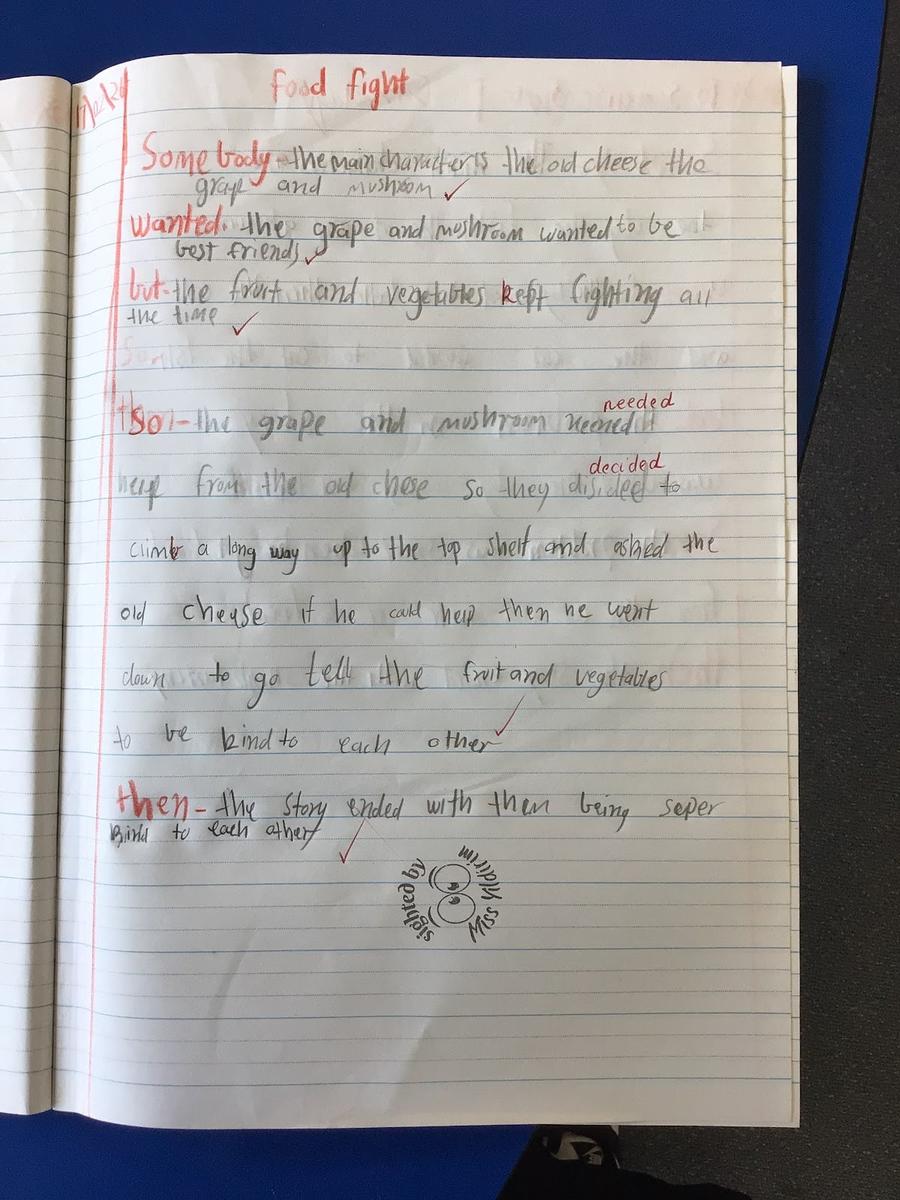 17/2/20
Food fight
Somebody - the main character is the old cheese the
grape and mushroom
wanted. the grape and mushroom wanted to be
best friends
but - the fruit and vegetables kept fighting all
the time
so - the grape and mushroom
needed
help from the old chese so they disided to
decided
climb a long way up to the top shelf and asked the
old cheese if he could help then he went
down to go tell the fruit and vegetables
to be kind to each other
then - the story ended with them being seper
kind to each other
sighted by
Miss Yildirim